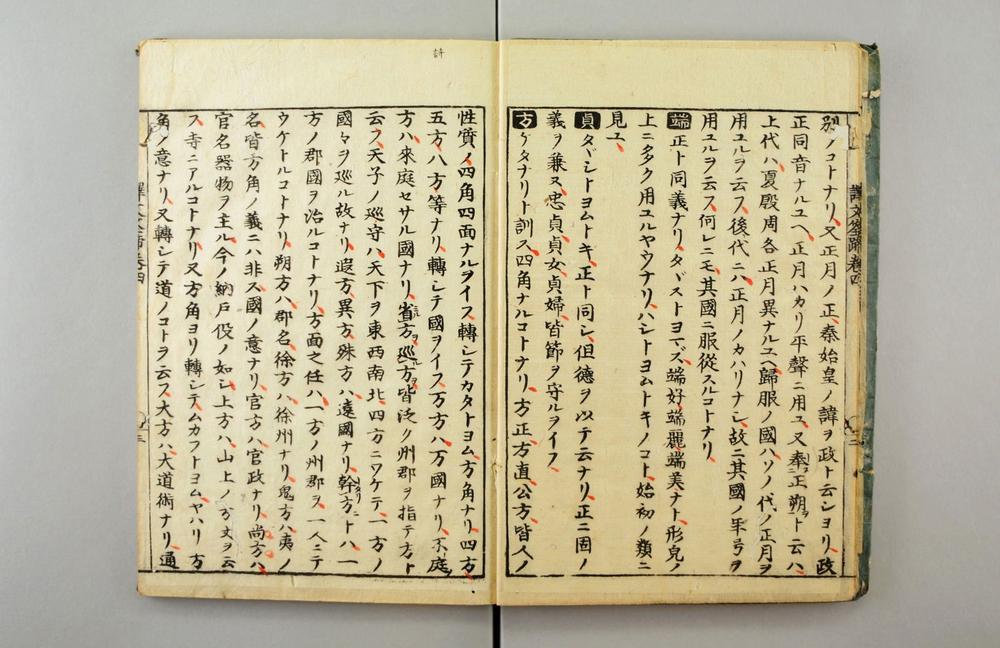 別ノコトナリ又正月ノ正秦始皇ノ諱ヲ政ト云シヨリ政
正同音ナルユヘ正月ハカリ平聲ニ用ユ又奉正朔ト云ハ
上代ハ夏殷周各正月異ナルユヘ歸服ノ國ハソノ代ノ正月ヲ
用ユルヲ云フ後代ニハ正月ノカハリナシ故ニ其國ノ年号ヲ
用ユルヲ云フ何レニモ其國ニ服從スルコトナリ
端正ト同義ナリタヾストヨマズ端好端麗端美ナト形皃ノ
上ニ多ク用ユルヤウナリハシトヨムトキノコト始初ノ類ニ
見ユ
貞タヾシトヨムトキ正ト同シ但德ヲ以テ云ナリ正ニ固ノ
義ヲ兼ヌ忠貞貞女貞婦皆節ヲ守ルヲイフ
方ケタナリト訓ス四角ナルコトナリ方正方直公方皆人ノ
性質ノ四角四面ナルヲイス轉シテカタトヨム方角ナリ四方
五方八方等ナリ轉シテ國ヲイフ万方ハ万國ナリ不庭
方ハ來庭セサル國ナリ省方巡方皆泛ク州郡ヲ指テ方ト
云フ天子ノ巡守ハ天下ヲ東西南北四方ニワケテ一方ノ
國々ヲ巡ル故ナリ遐方異方殊方ハ遠國ナリ幹方ト八一
方ノ郡國ヲ治ルコトナリ方面之任ハ一方ノ州郡ヲ一人ニテ
ウケトルコトナリ朔方ハ郡名徐方ハ徐州ナリ鬼方ハ夷ノ
名皆方角ノ義ニハ非ス國ノ意ナリ官方ハ官政ナリ尚方ハ
官名器物ヲ主ル今ノ納戸役ノ如シ上方ハ山上ノ方丈ヲ云
ス寺ニアルコトナリ又方角ヨリ轉シテムカフトヨムヤハリ方
角ノ意ナリ又轉シテ道ノコトヲ云ス大方ハ大道術ナリ通
譯文筌蹄卷四